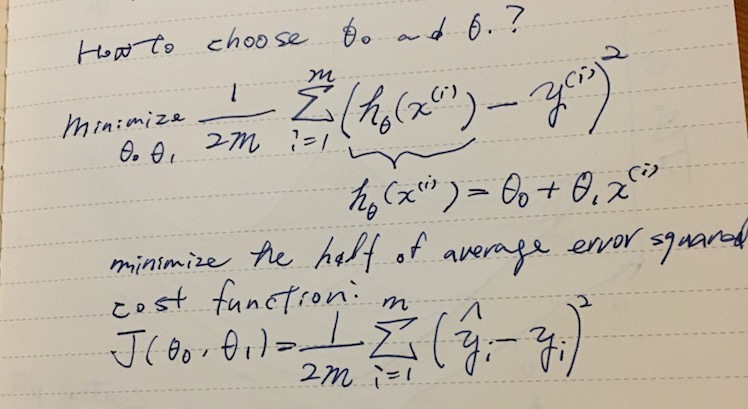 How to choose θ₀ and θ₁?
minimize θ₀ θ₁ 1/2m Σ i=1 m (h_θ(x^(i)) - y^(i))²
h_θ(x^(i)) = θ₀ + θ₁x^(i)
minimize the half of average error squared
cost function:
J(θ₀, θ₁) = 1/2m Σ i=1 m (ŷᵢ - yᵢ)²